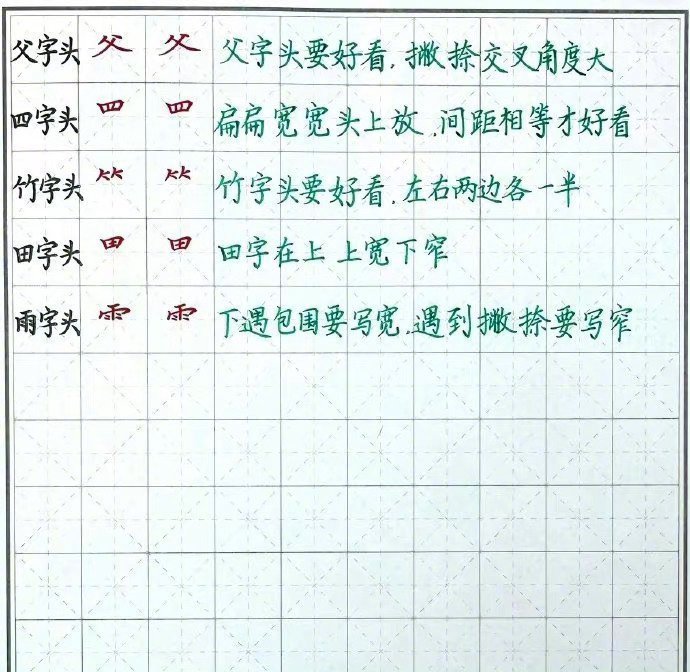 父字头 父 父 父字头要好看,撇捺交叉角度大
四字头 罒 罒 扁扁宽宽头上放,间距相等才好看
竹字头 ⺮ ⺮ 竹字头要好看,左右两边各一半
田字头 田 田 田字在上 上宽下窄
雨字头 ⻗ ⻗ 下遇包围要写宽,遇到撇捺要写窄